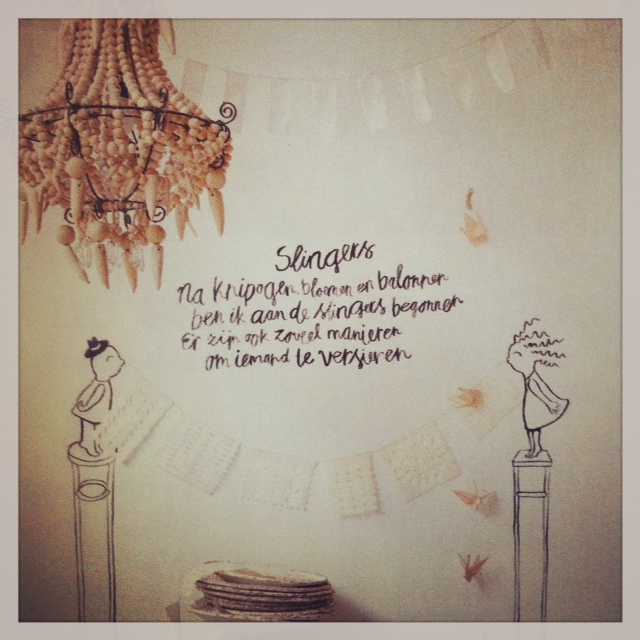 Slingers
Na knipogen, bloemen en balonnen
ben ik aan de slingers begonnen
Er zijn ook zoveel manieren
om iemand te versieren